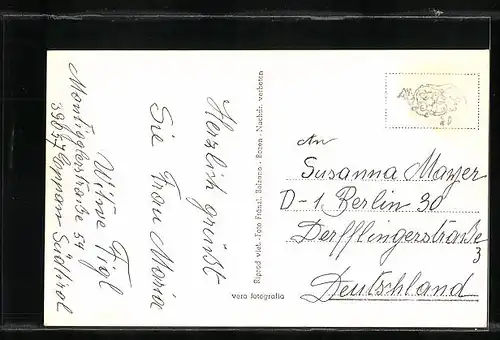 Herzlich grüßt
Sie Frau Maria
Witwe Figl
Montigglerstraße 54
39057 Eppan Südtirol
Riprod viet.-Foto Fränzl, Bolzano - Bozen - Nachdr. verboten
vera fotografia
An
Susanna Mayer
D-1 Berlin 30
Derfflingerstraße
3
Deutschland